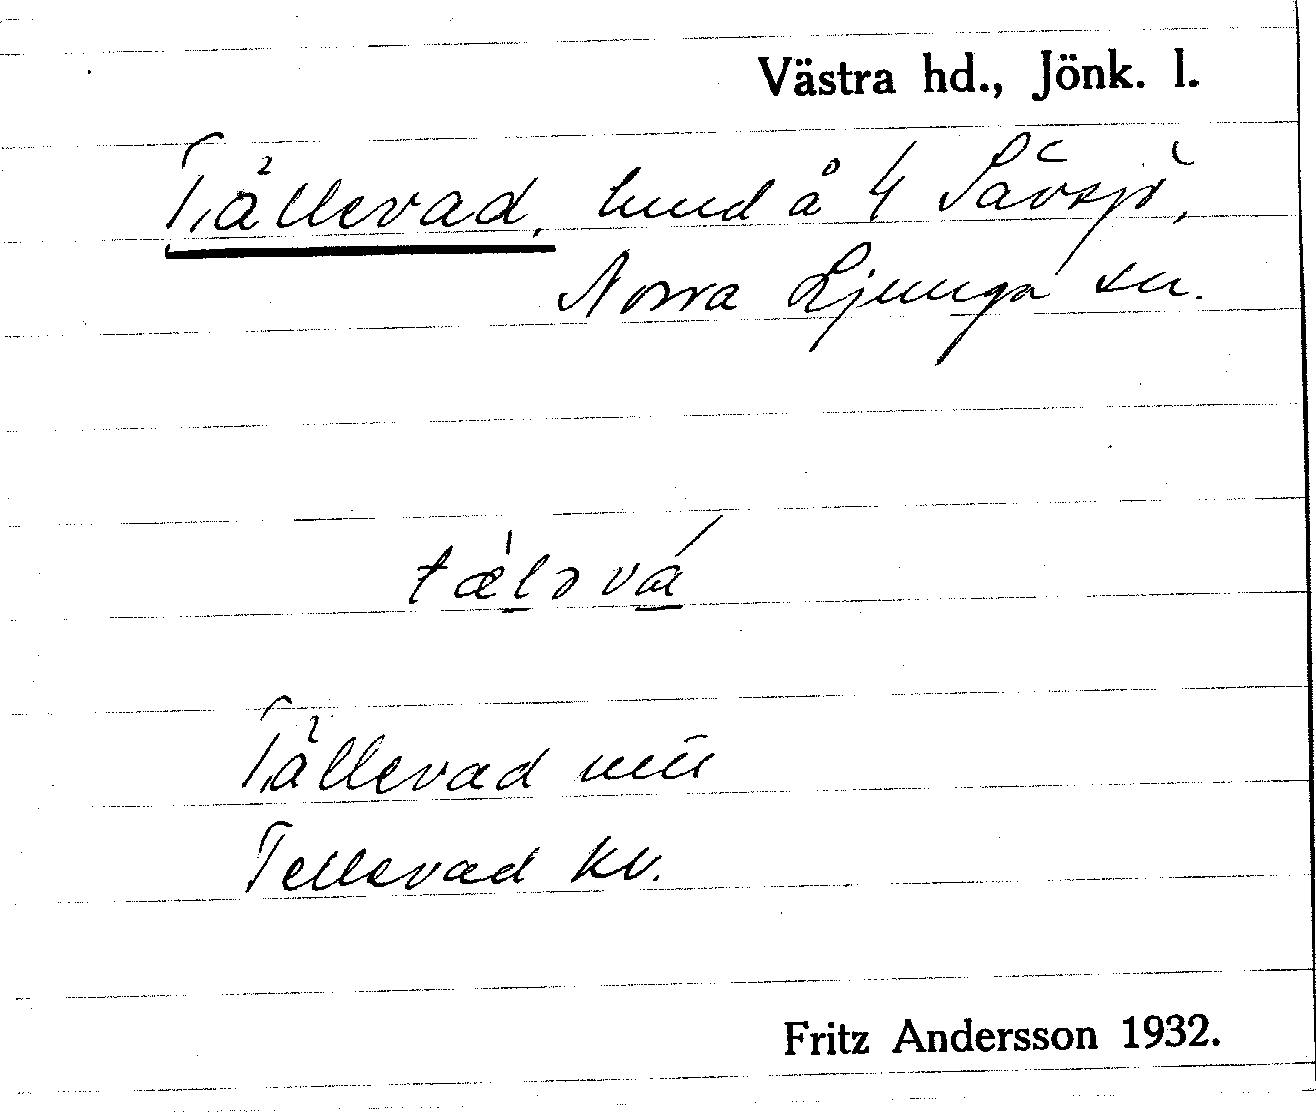 Västra hd., Jönk. l.
Tällevad, lund å 4 Sävsjö,
Norra Ljunga sn.
tæ̀lɔvá
Tällevad
Tellevad kv.
Fritz Andersson 1932.